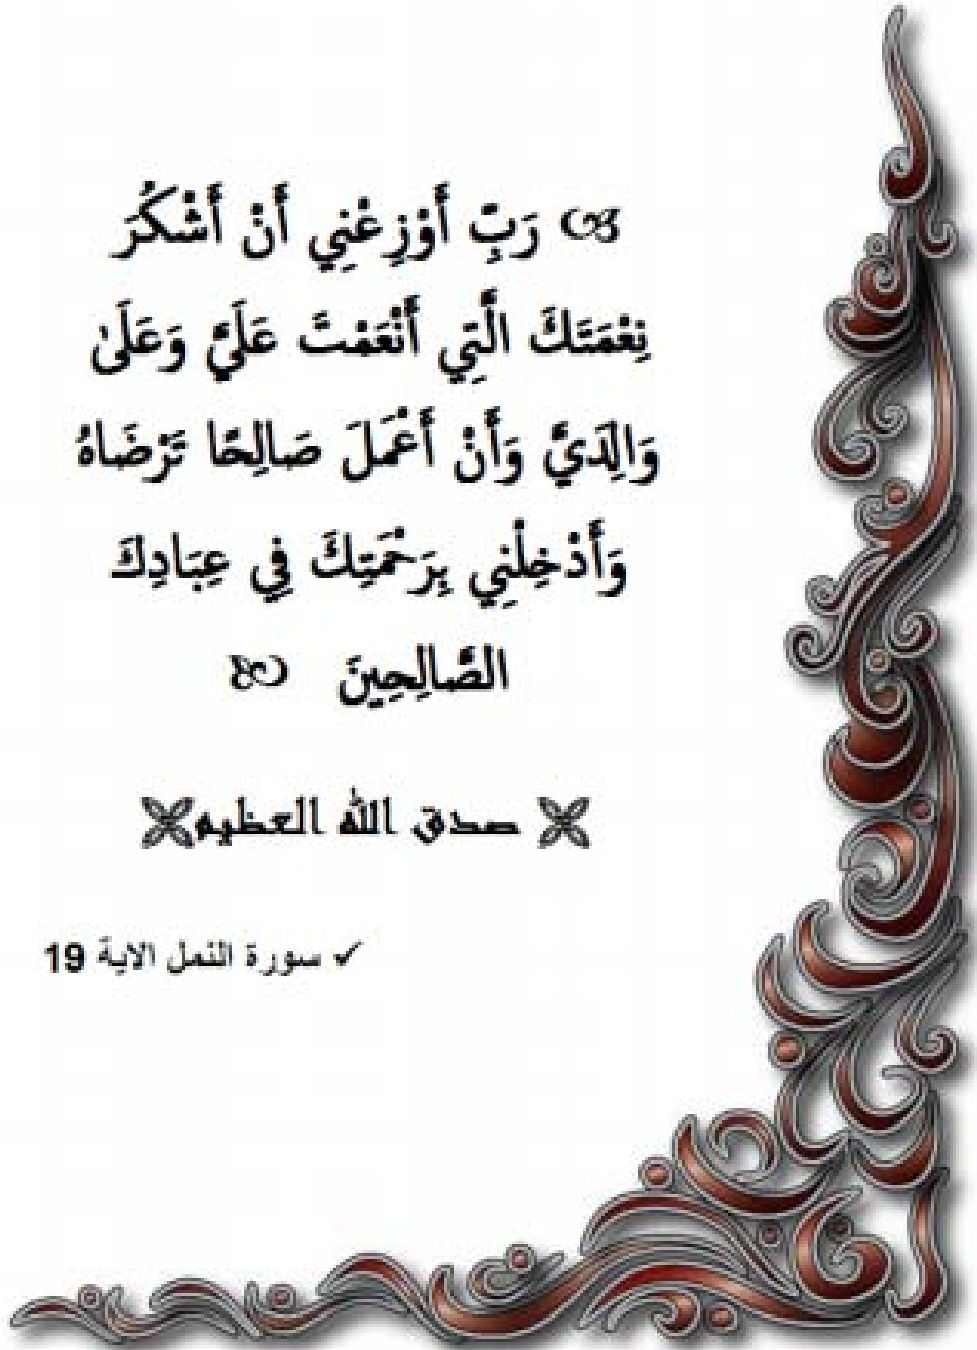 رَبِّ أَوْزِعْنِي أَنْ أَشْكُرَ
نِعْمَتَكَ الَّتِي أَنْعَمْتَ عَلَيَّ وَعَلَىٰ
وَالِدَيَّ وَأَنْ أَعْمَلَ صَالِحًا تَرْضَاهُ
وَأَدْخِلْنِي بِرَحْمَتِكَ فِي عِبَادِكَ
الصَّالِحِينَ
صدق الله العظيم
✓ سورة النمل الاية 19